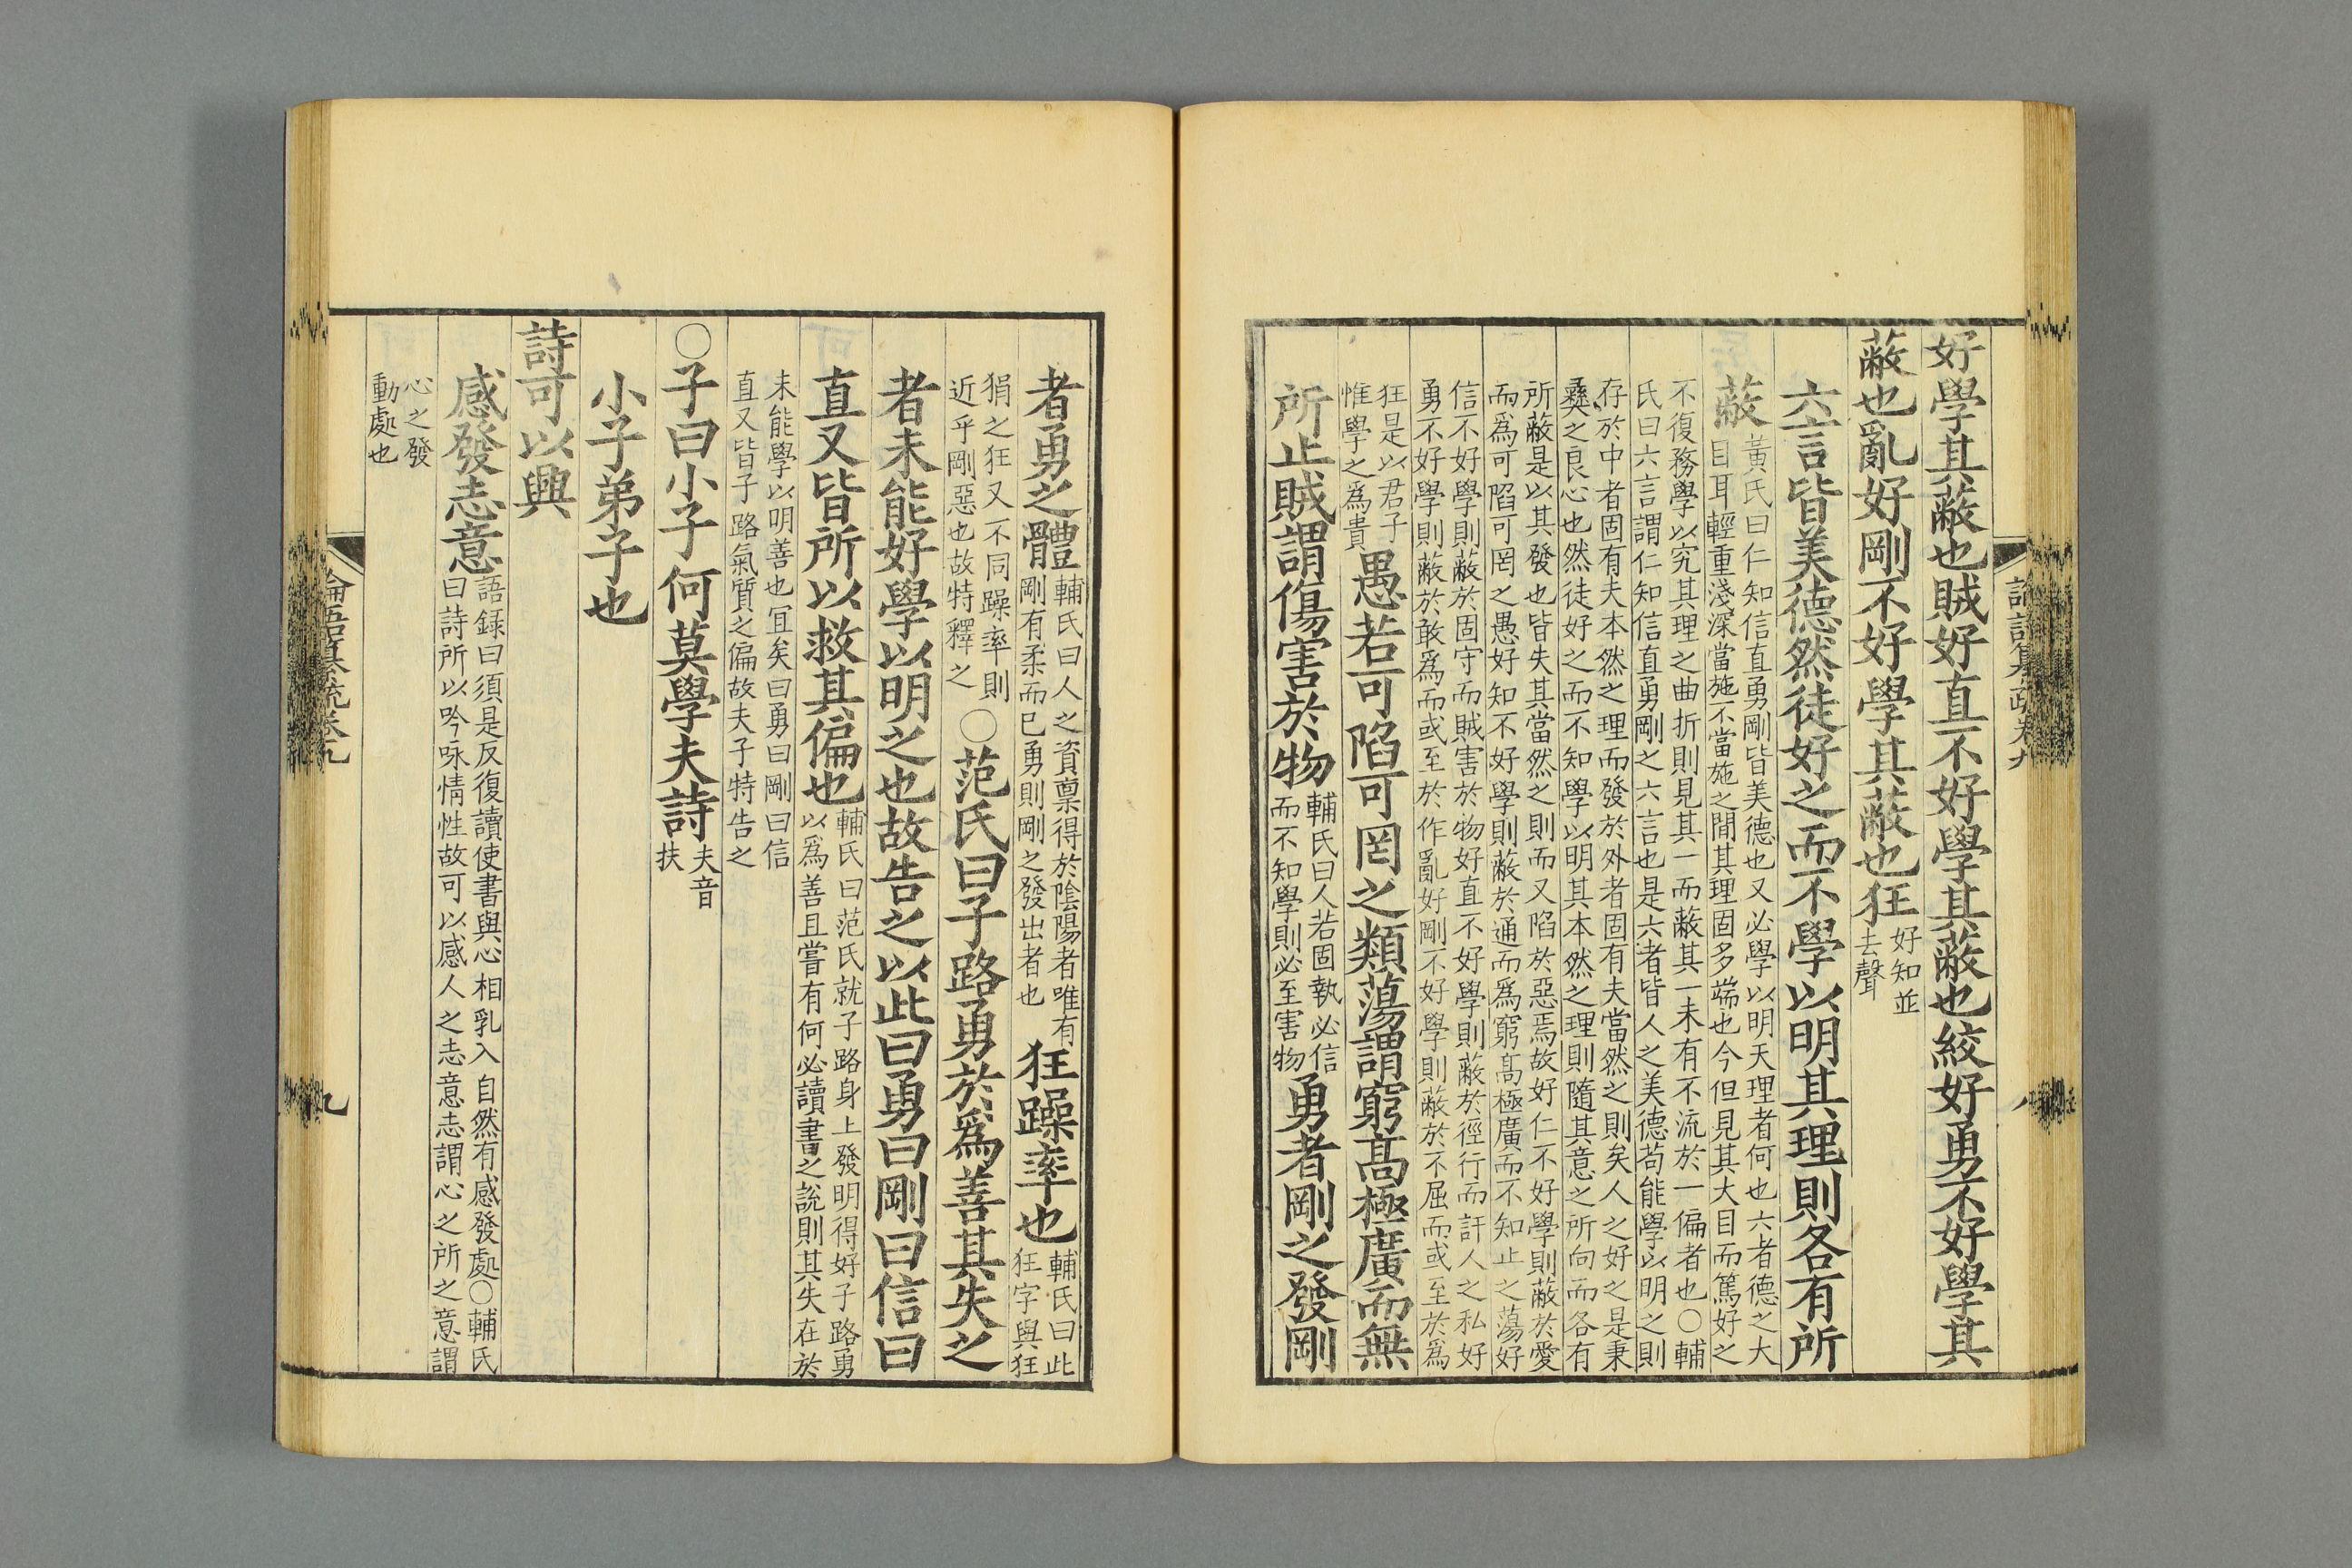 好學其蔽也賊好直不好學其蔽也絞好勇不好學其
蔽也亂好剛不好學其蔽也狂好知並
去聲
六言皆美德然徒好之而不學以明其理則各有所
蔽黃氏曰仁知信直勇剛皆美德也又必學以明天理者何也六者德之大
目耳輕重淺深當施不當施之閒其理固多端也今但見其大目而篤好之
不復務學以究其理之曲折則見其一而蔽其一未有不流於一偏者也〇輔
氏曰六言謂仁知信直勇剛之六言也是六者皆人之美德苟能學以明之則
存於中者固有夫本然之理而發於外者固有夫當然之則矣人之好之是秉
彝之良心也然徒好之而不知學以明其本然之理則隨其意之所向而各有
所蔽是以其發也皆失其當然之則而又陷於惡焉故好仁不好學則蔽於愛
而爲可陷可罔之愚好知不好學則蔽於通而爲窮髙極廣而不知止之蕩好
信不好學則蔽於固守而賊害於物好直不好學則蔽於徑行而訐人之私好
勇不好學則蔽於敢爲而或至於作亂好剛不好學則蔽於不屈而或至於爲
狂是以君子
惟學之爲貴愚若可陷可罔之類蕩謂窮髙極廣而無
所止賊謂傷害於物輔氏曰人若固執必信
而不知學則必至害物勇者剛之發剛
論語集疏卷九
者勇之體輔氏曰人之資禀得於陰陽者唯有
剛有柔而已勇則剛之發出者也狂躁率也輔氏曰此
狂字與狂
狷之狂又不同躁率則
近乎剛惡也故特釋之〇范氏曰子路勇於爲善其失之
者未能好學以明之也故告之以此曰勇曰剛曰信曰
直又皆所以救其偏也輔氏曰范氏就子路身上發明得好子路勇
以爲善且嘗有何必讀書之說則其失在於
未能學以明善也宜矣曰勇曰剛曰信
直又皆子路氣質之偏故夫子特告之
〇子曰小子何莫學夫詩夫音
扶
小子弟子也
詩可以興
感發志意語録曰須是反復讀使書與心相乳入自然有感發處〇輔氏
曰詩所以吟咏情性故可以感人之志意志謂心之所之意謂
心之發
動處也
論語集疏卷九
九